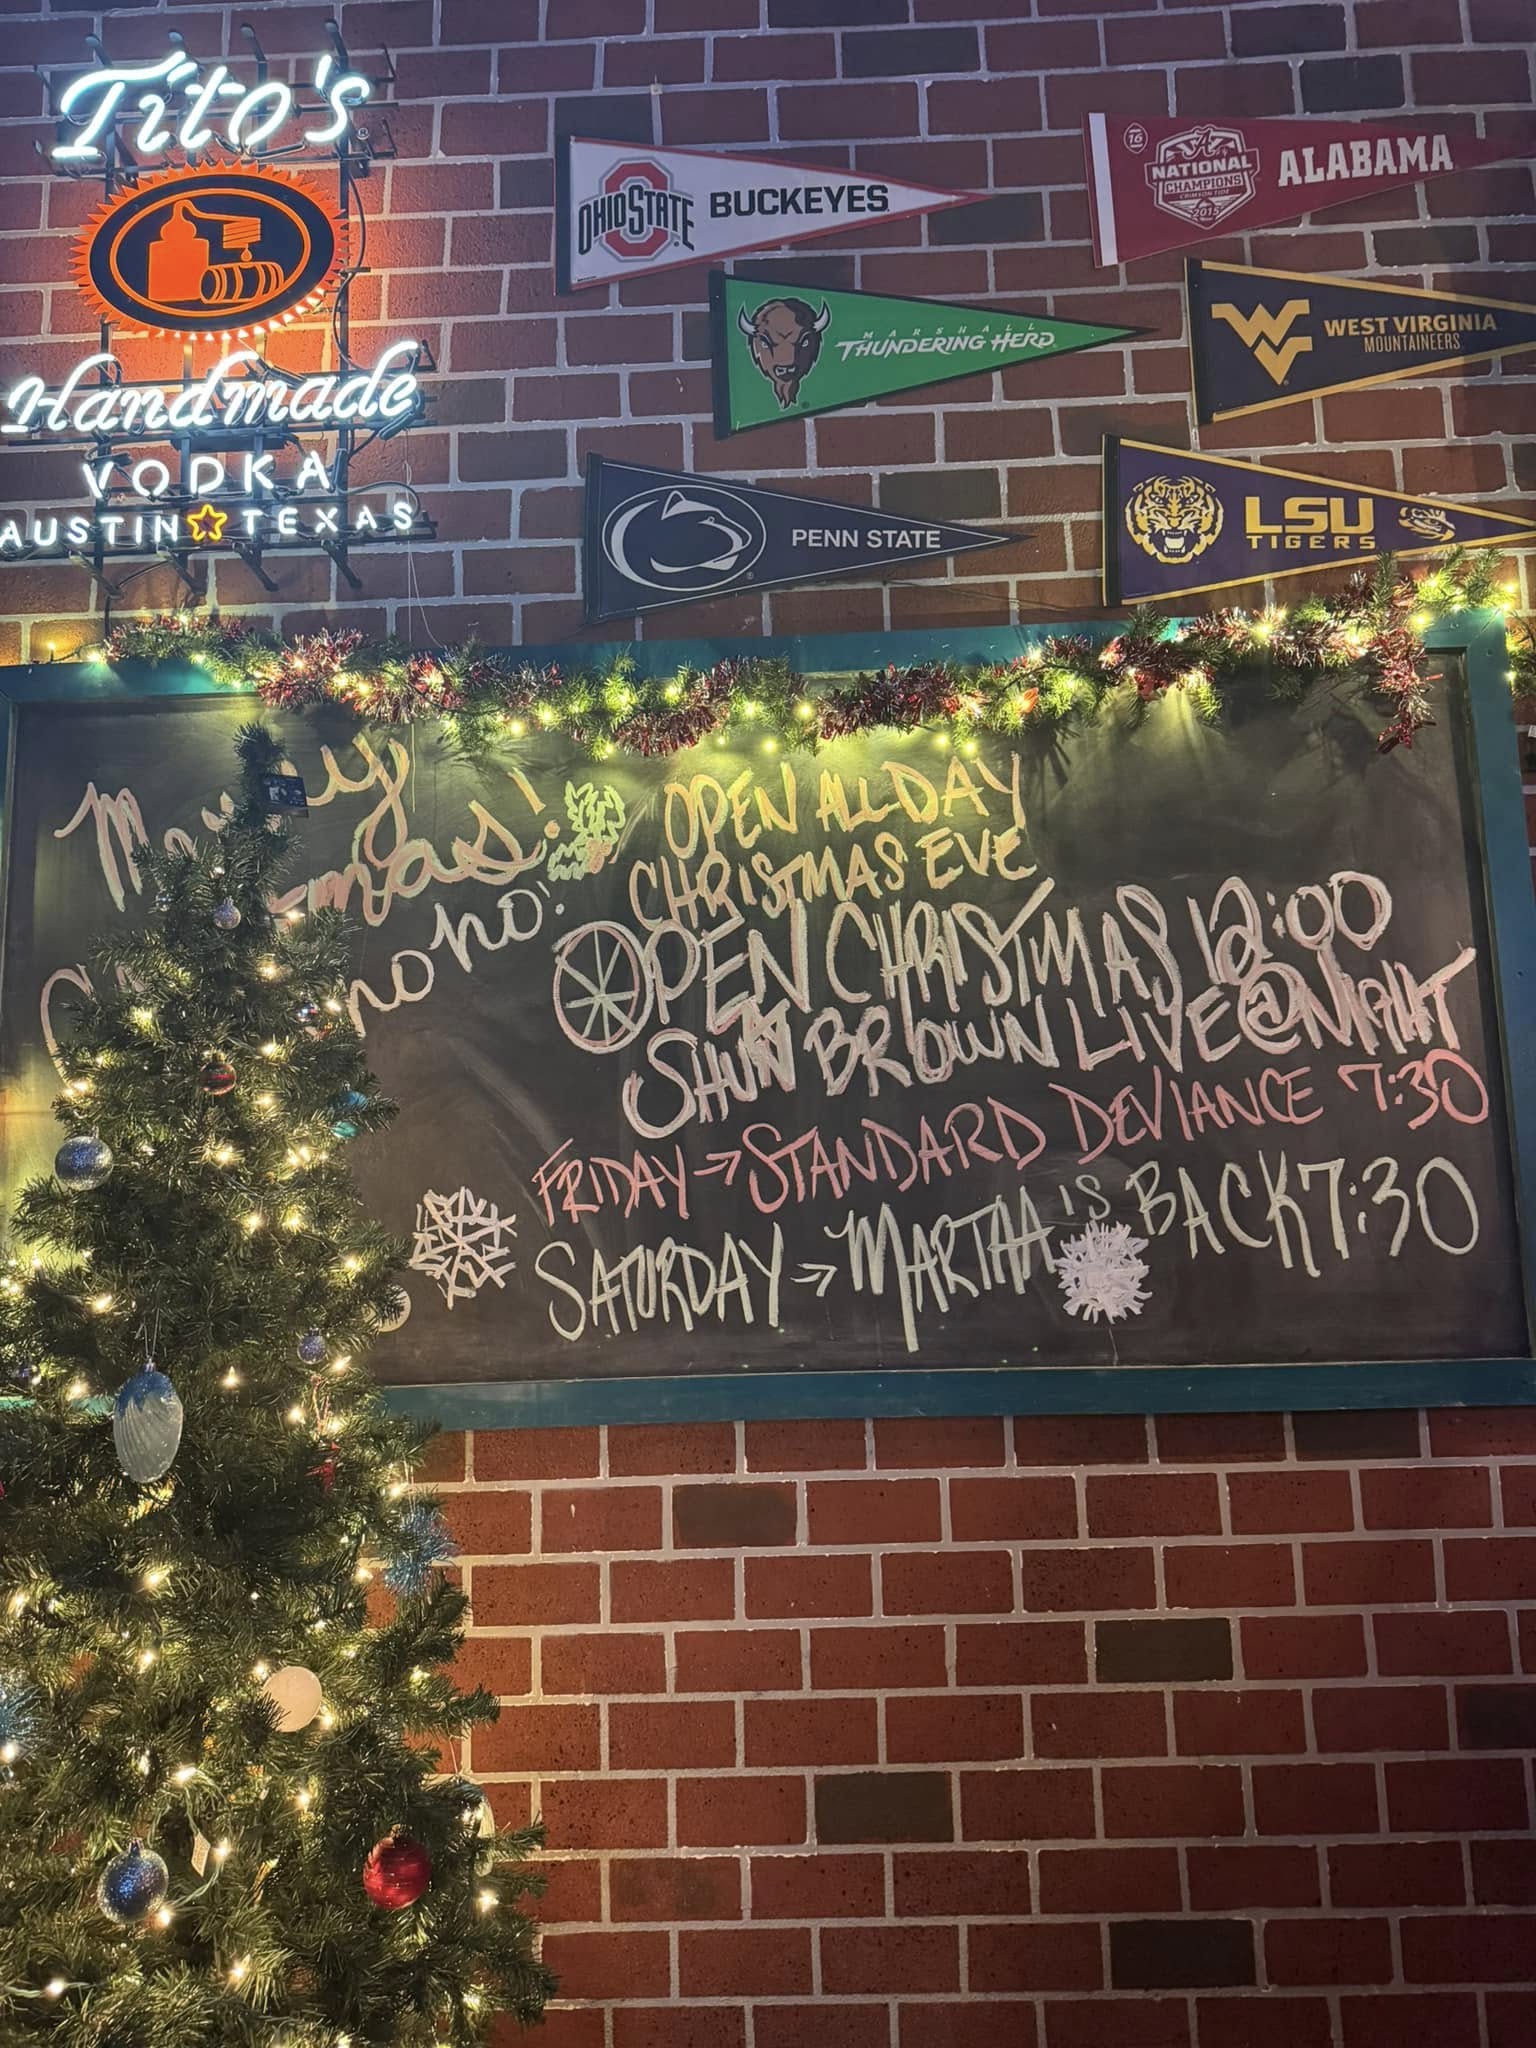 Tito's
Handmade
VODKA
AUSTIN TEXAS
OHIO STATE BUCKEYES
16
NATIONAL
CHAMPIONS
CRIMSON TIDE
2015
ALABAMA
MARSHALL
THUNDERING HERD
WV
WEST VIRGINIA
MOUNTAINEERS
PENN STATE
LSU
TIGERS
Merry
mas!
Ho Ho!
OPEN ALL DAY
CHRISTMAS EVE
OPEN CHRISTMAS 12:00
SHUN BROWN LIVE @ NIGHT
FRIDAY → STANDARD DEVIANCE 7:30
SATURDAY → MARTHA IS BACK 7:30